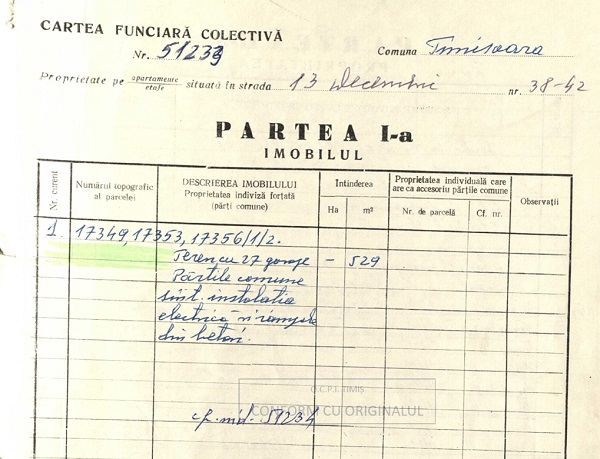 CARTEA FUNCIARĂ COLECTIVĂ
Nr. 51233
Comuna Timisoara
Proprietate pe apartamente etaje situată în strada 13 Decembrie nr. 38-42
PARTEA I-a
IMOBILUL
Nr. curent
Numărul topografic al parcelei
DESCRIEREA IMOBILULUI
Proprietatea indiviză forțată
(părți comune)
Intinderea
Ha
m²
Proprietatea individuală care are ca accesoriu părțile comune
Nr. de parcelă
Cf. nr.
Observații
1. 17349, 17353, 17356/1/2.
Teren cu 27 garaje – 529
Părtile comune
sînt. instalatia
electrică si
din beton.
O.C.P.I. TIMIS
CONFORM CU ORIGINALUL
cf. ind. 51234